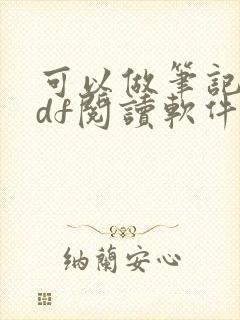 可以做筆記
df閱讀軟件
納蘭安心